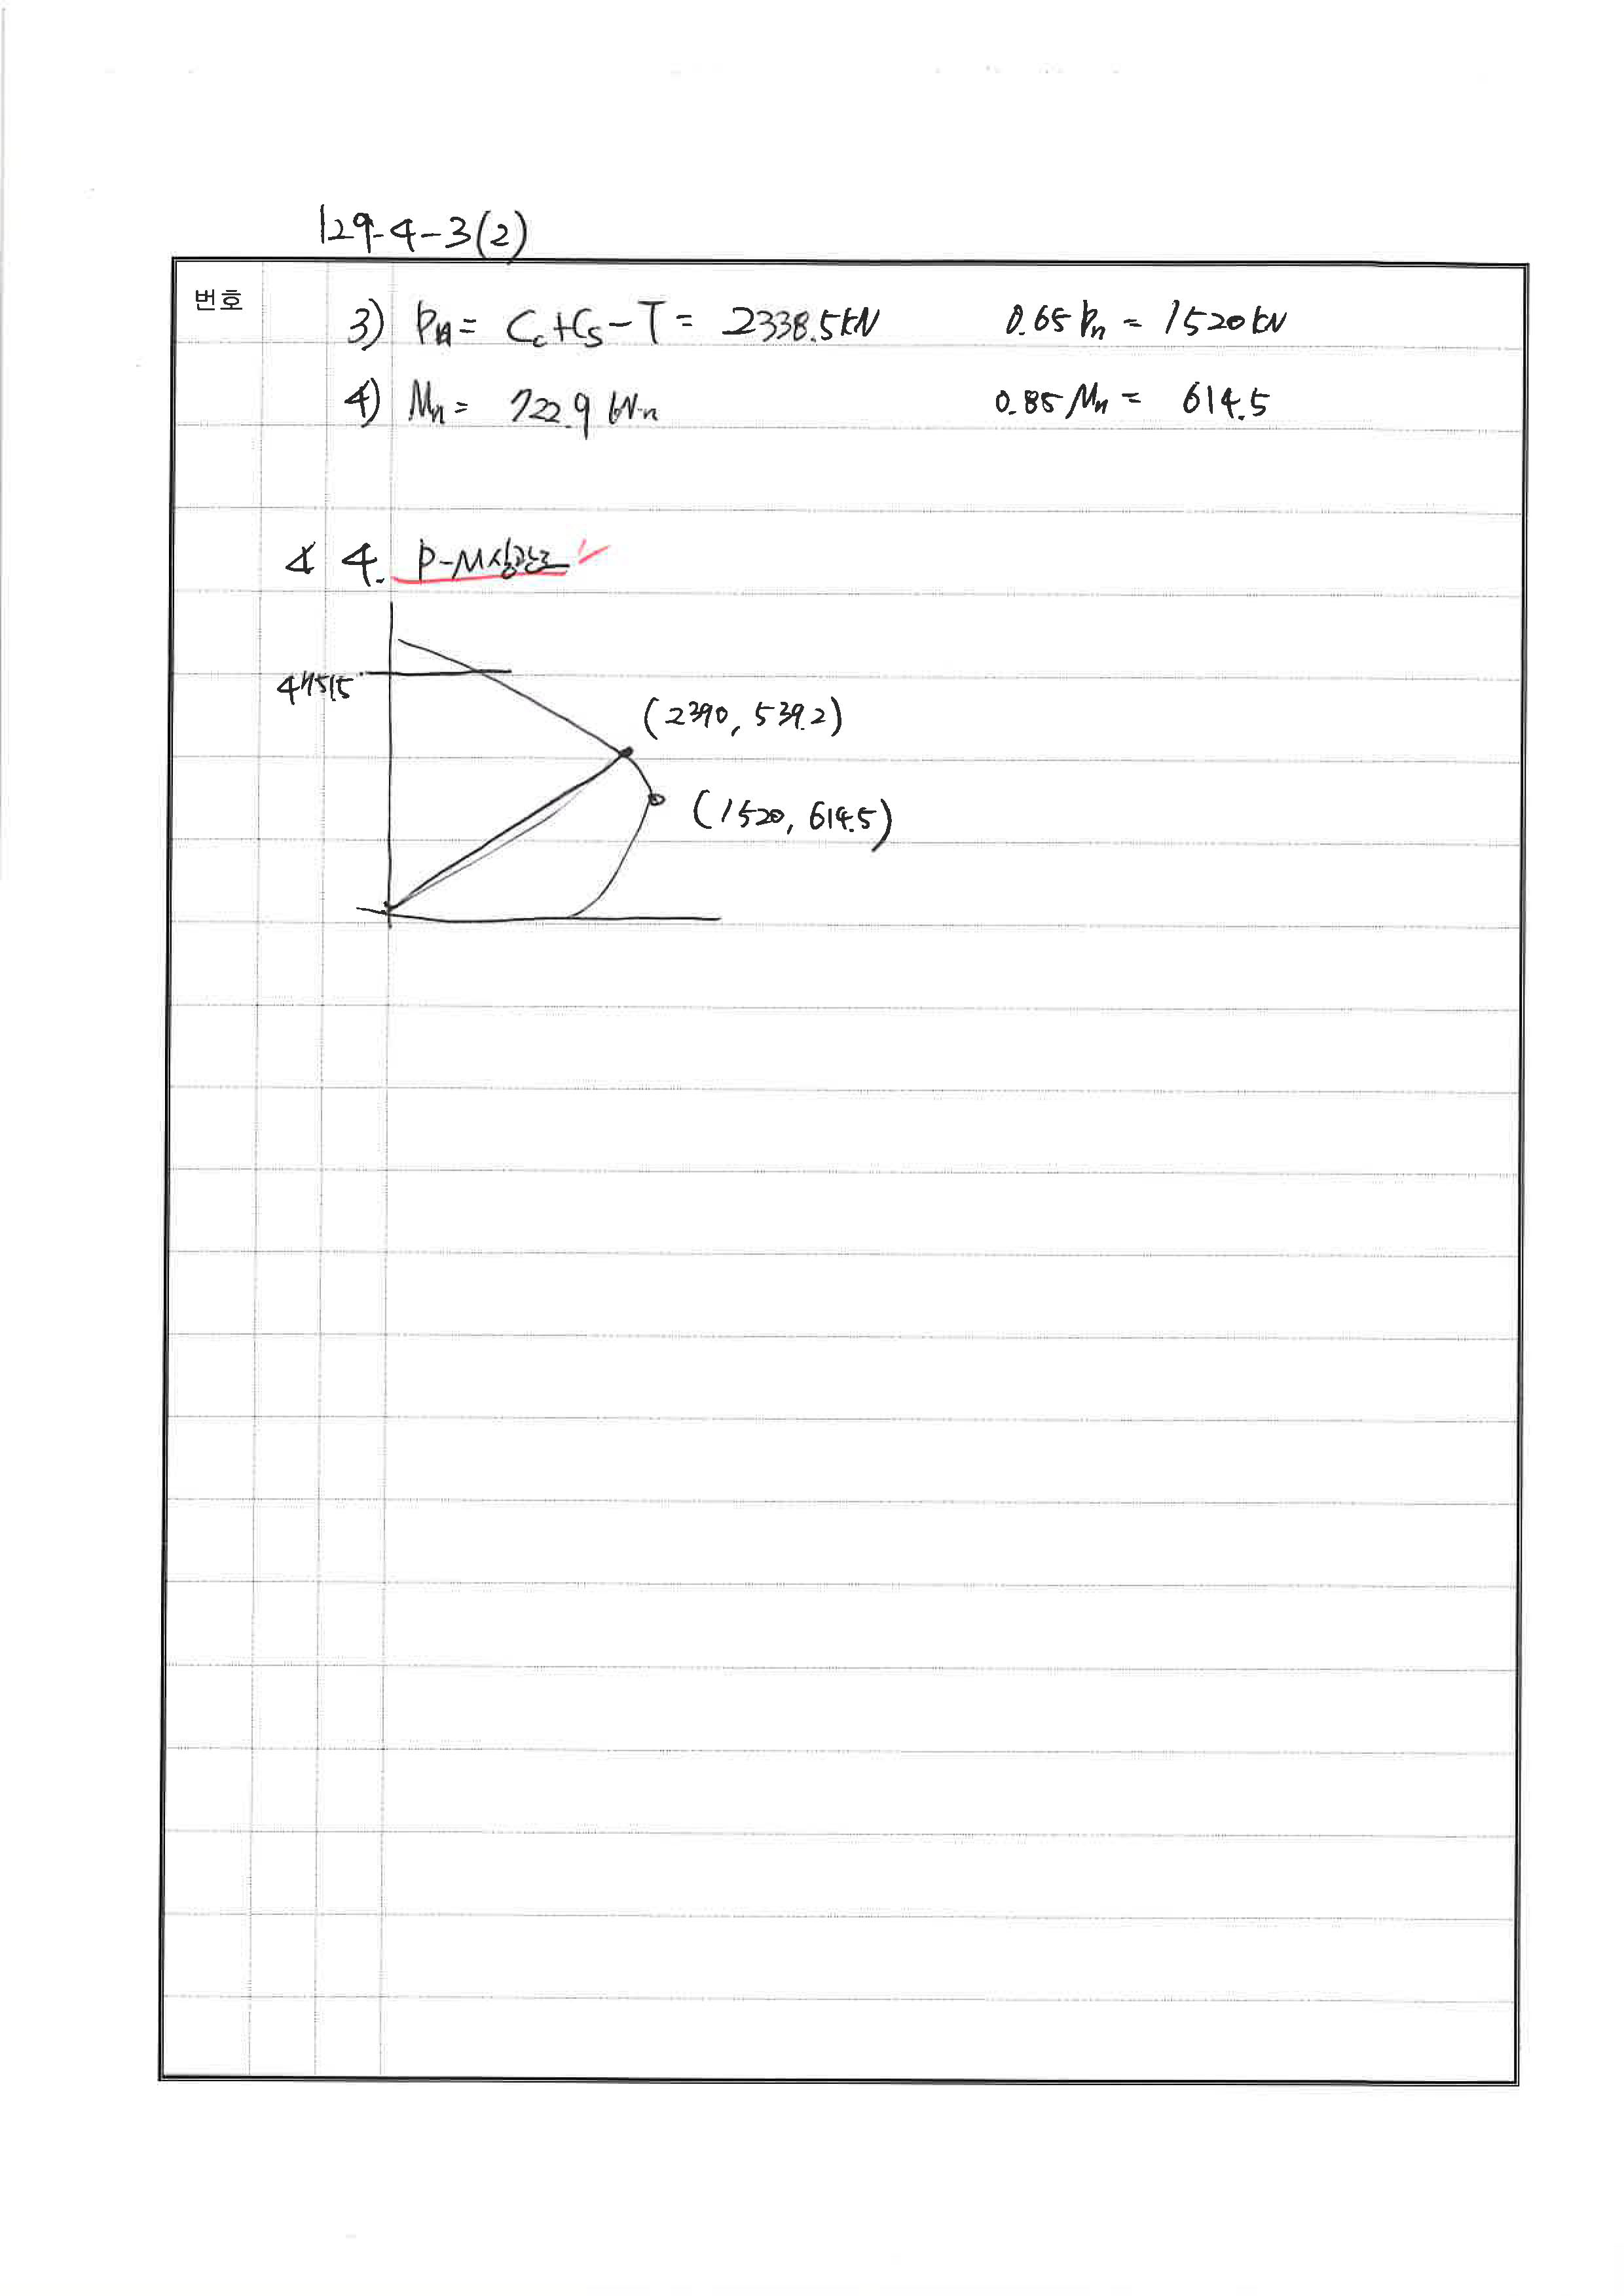 129-4-3(2)
번호
3) Pn = Cc+Cs-T = 2338.5kN 0.65Pn = 1520kN
4) Mn = 722.9 kN·m 0.85Mn = 614.5
4. P-M상관도
47515
(2390, 539.2)
(1520, 614.5)